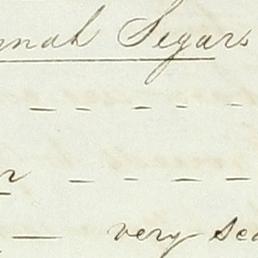 nnah Segars
— — — —
r — — — —
— very sca